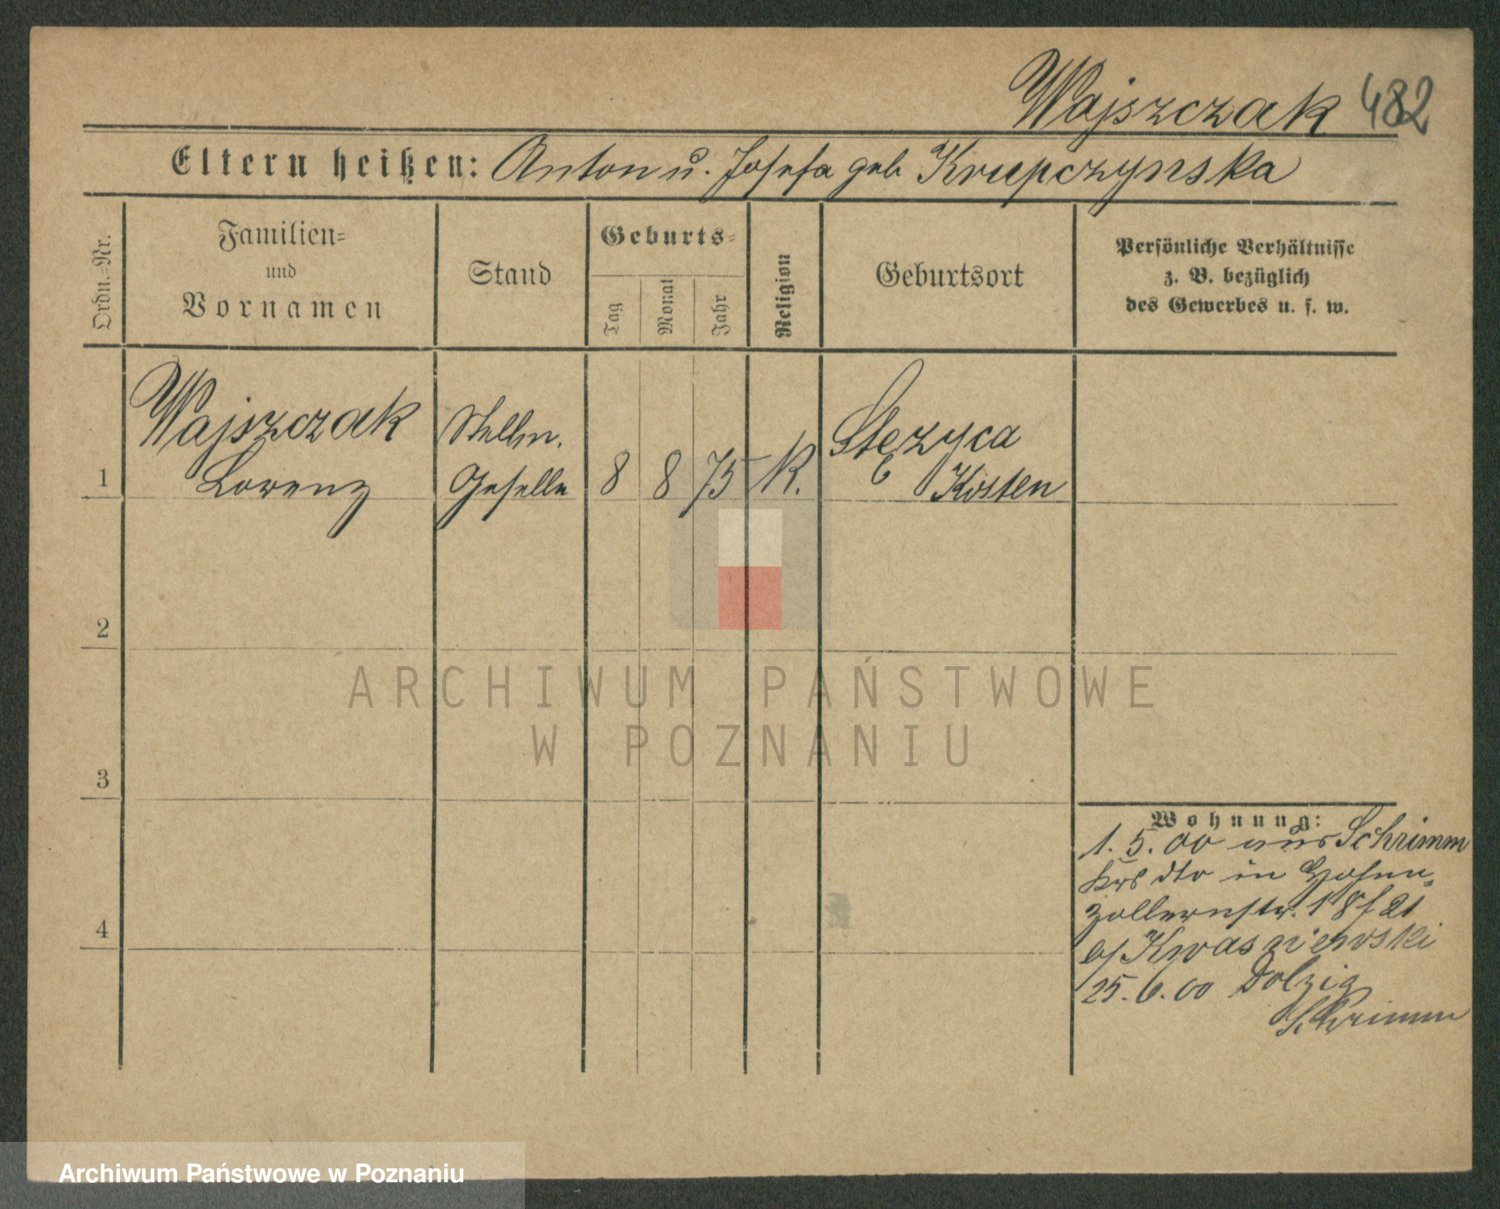 Wajszczak 482
Eltern heißen: Anton u. Josefa geb Krupczynska
Ordn.-Nr.
Familien-
und
Vornamen
Stand
Geburts-
Tag
Monat
Jahr
Religion
Geburtsort
Persönliche Verhältnisse
z. B. bezüglich
des Gewerbes u. s. w.
Wajszczak Stellm. Stęzyca
1 Lorenz Geselle 8 8 75 K. Kosten
2
ARCHIWUM PAŃSTWOWE
W POZNANIU
3
Wohnung:
1. 5. 00 aus Schrimm
Krs dto in Hohen-
zollernstr. 18
b/ Kwasniewski
4
25. 6. 00 Dolzig
Schrimm
Archiwum Państwowe w Poznaniu